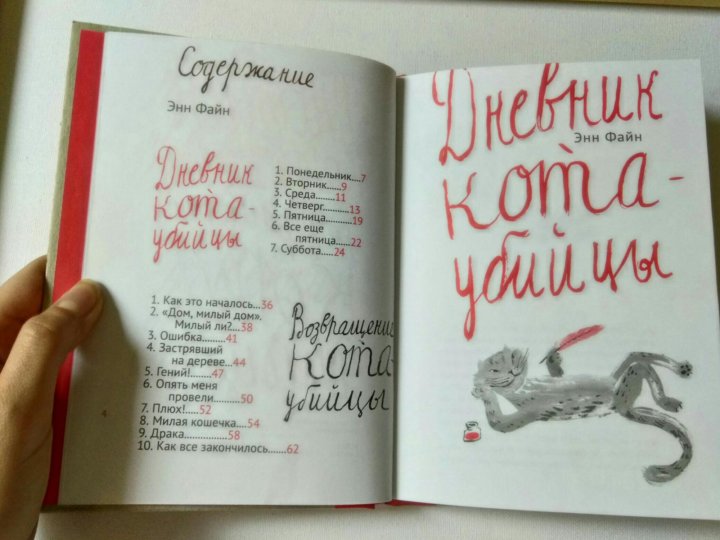 Содержание
Энн Файн
Дневник
кота-
убийцы
1. Понедельник....7
2. Вторник.......9
3. Среда.......11
4. Четверг...........13
5. Пятница...........19
6. Все еще
пятница......22
7. Суббота.....24
1. Как это началось...36
2. «Дом, милый дом».
Милый ли?...38
3. Ошибка........41
4. Застрявший
на дереве...44
5. Гений!......47
6. Опять меня
провели.........50
7. Плюх!....52
8. Милая кошечка....54
9. Драка.............58
10. Как все закончилось.......62
Возвращение
кота-
убийцы
4
Дневник
Энн Файн
кота-
убийцы